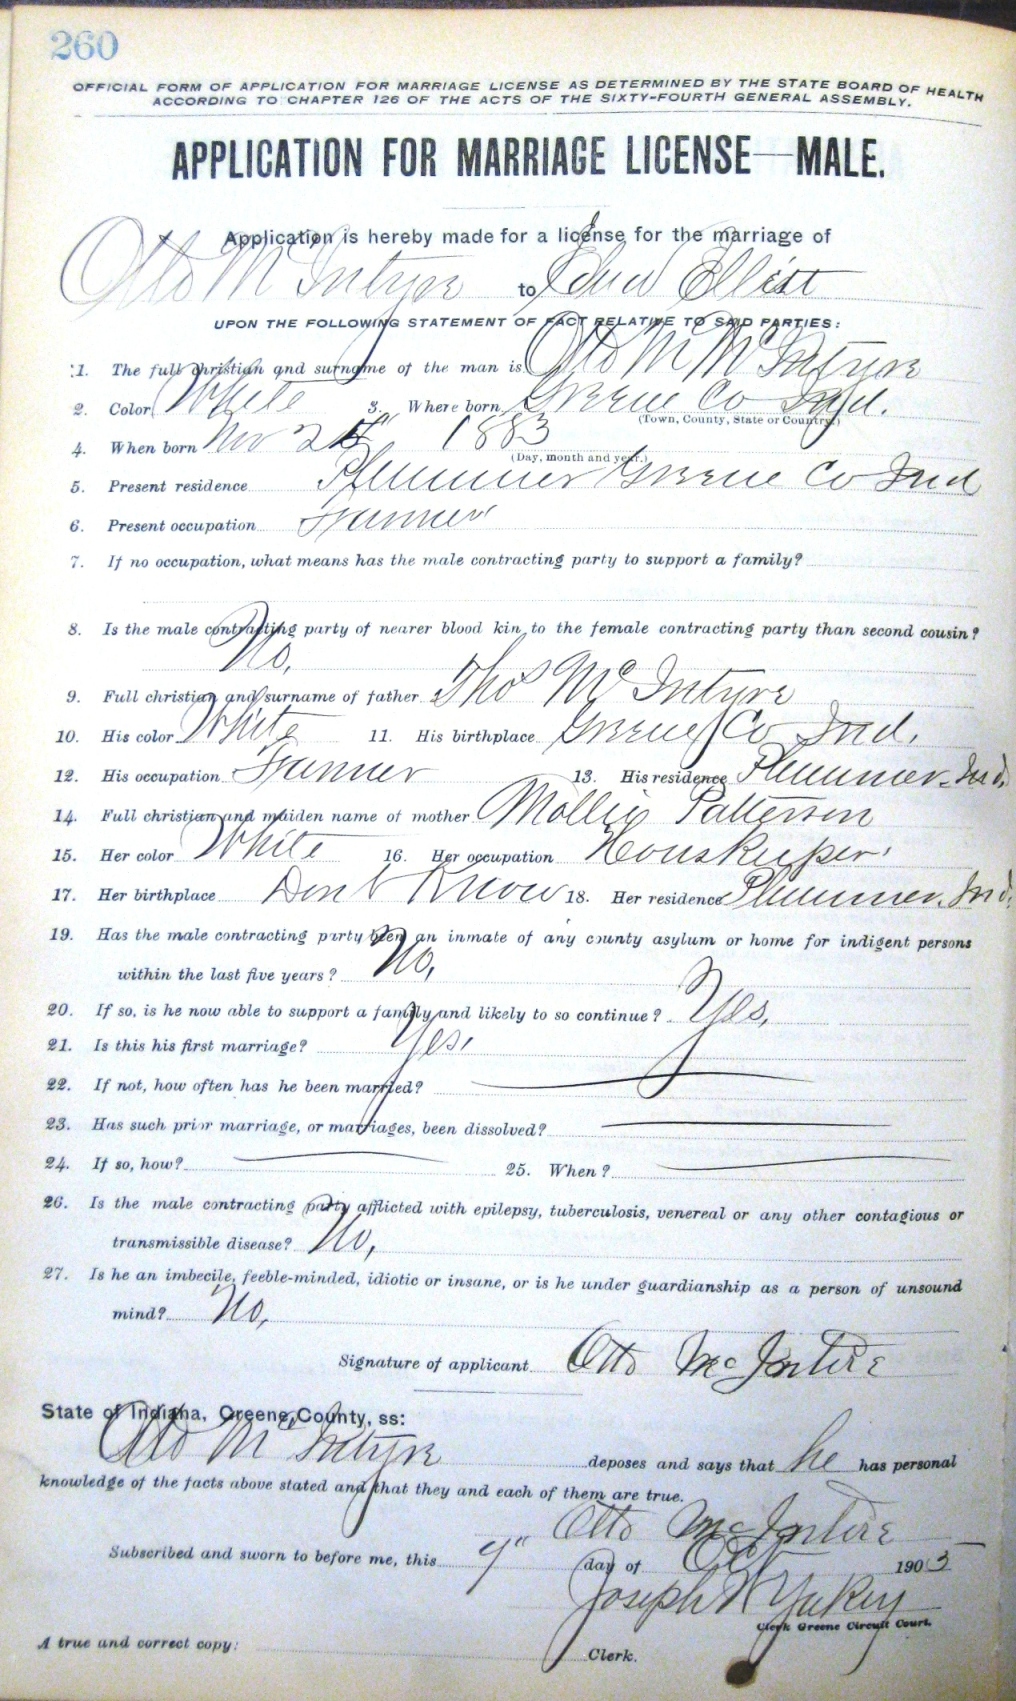 260
OFFICIAL FORM OF APPLICATION FOR MARRIAGE LICENSE AS DETERMINED BY THE STATE BOARD OF HEALTH
ACCORDING TO CHAPTER 126 OF THE ACTS OF THE SIXTY-FOURTH GENERAL ASSEMBLY.
APPLICATION FOR MARRIAGE LICENSE—MALE.
Application is hereby made for a license for the marriage of
Otto McIntyre to Elliott
UPON THE FOLLOWING STATEMENT OF FACT RELATIVE TO SAID PARTIES:
1. The full christian and surname of the man is Otto M McIntyre
2. Color White 3. Where born Greene Co Ind.
(Town, County, State or Country.)
4. When born Nov 1883
(Day, month and year.)
5. Present residence Plummer Greene Co Ind
6. Present occupation Farmer
7. If no occupation, what means has the male contracting party to support a family?
8. Is the male contracting party of nearer blood kin to the female contracting party than second cousin?
No.
9. Full christian and surname of father Thos McIntyre
10. His color White 11. His birthplace Greene Co Ind.
12. His occupation Farmer 13. His residence Plummer Ind.
14. Full christian and maiden name of mother Mollie Patterson
15. Her color White 16. Her occupation Houskeeper.
17. Her birthplace Dont Know 18. Her residence Plummer. Ind.
19. Has the male contracting party been an inmate of any county asylum or home for indigent persons
within the last five years? No,
20. If so, is he now able to support a family and likely to so continue? Yes,
21. Is this his first marriage? Yes,
22. If not, how often has he been married?
23. Has such prior marriage, or marriages, been dissolved?
24. If so, how? 25. When?
26. Is the male contracting party afflicted with epilepsy, tuberculosis, venereal or any other contagious or
transmissible disease? No,
27. Is he an imbecile, feeble-minded, idiotic or insane, or is he under guardianship as a person of unsound
mind? No,
Signature of applicant Otto McIntire
State of Indiana, Greene County, ss:
Otto McIntyre deposes and says that he has personal
knowledge of the facts above stated and that they and each of them are true.
Otto McIntire
Subscribed and sworn to before me, this 9" day of Oct 1905
Joseph W Yakey
Clerk Greene Circuit Court.
A true and correct copy: Clerk.